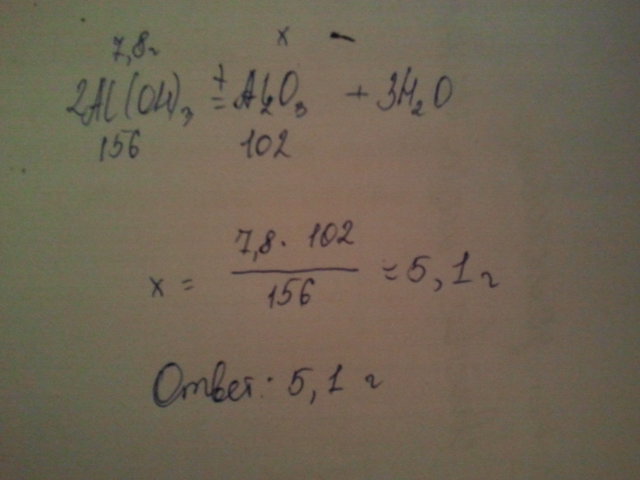 7,8г x –
2Al(OH)₃ =ᵗ Al₂O₃ + 3H₂O
156 102
x = 7,8 · 102 / 156 = 5,1 г
Ответ: 5,1 г